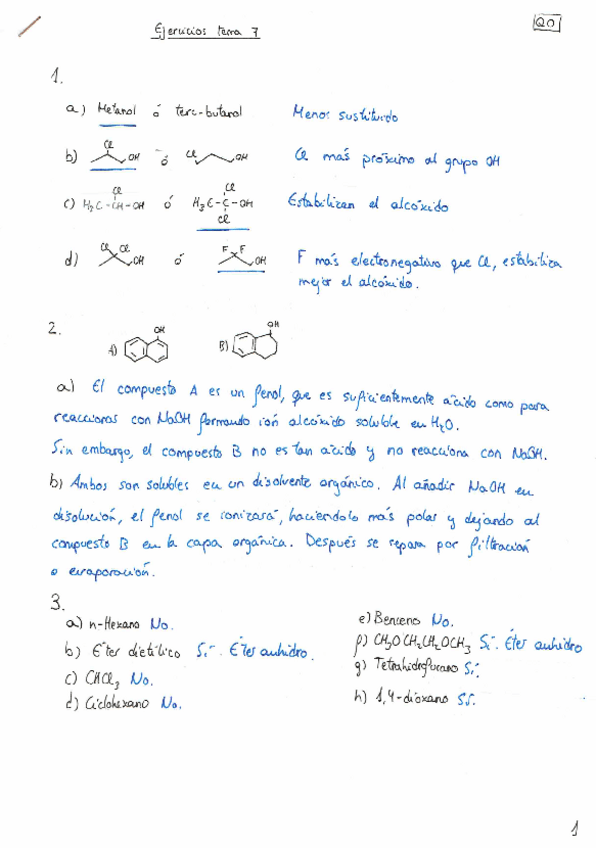 Ejercicios tema 7
QO
1.
a) Metanol ó terc-butanol Menos sustituido
b) Cl OH ó Cl OH Cl más próximo al grupo OH
c) H3C-CH-OH Cl ó H3C-C-OH Cl Cl Estabilizan el alcóxido
d) Cl Cl OH ó F F OH F más electronegativo que Cl, estabiliza
mejor el alcóxido.
2. A) OH B) OH
a) El compuesto A es un fenol, que es suficientemente ácido como para
reaccionar con NaOH formando ión alcóxido soluble en H2O.
Sin embargo, el compuesto B no es tan ácido y no reacciona con NaOH.
b) Ambos son solubles en un disolvente orgánico. Al añadir NaOH en
disolución, el fenol se ionizará, haciéndolo más polar y dejando al
compuesto B en la capa orgánica. Después se repara por filtración
o evaporación.
3.
a) n-Hexano No.
b) Éter dietílico Sí. Éter anhidro.
c) CHCl3 No.
d) Ciclohexano No.
e) Benceno No.
f) CH3OCH2CH2OCH3 Sí. Éter anhidro
g) Tetrahidrofurano Sí.
h) 1,4-dioxano Sí.
1